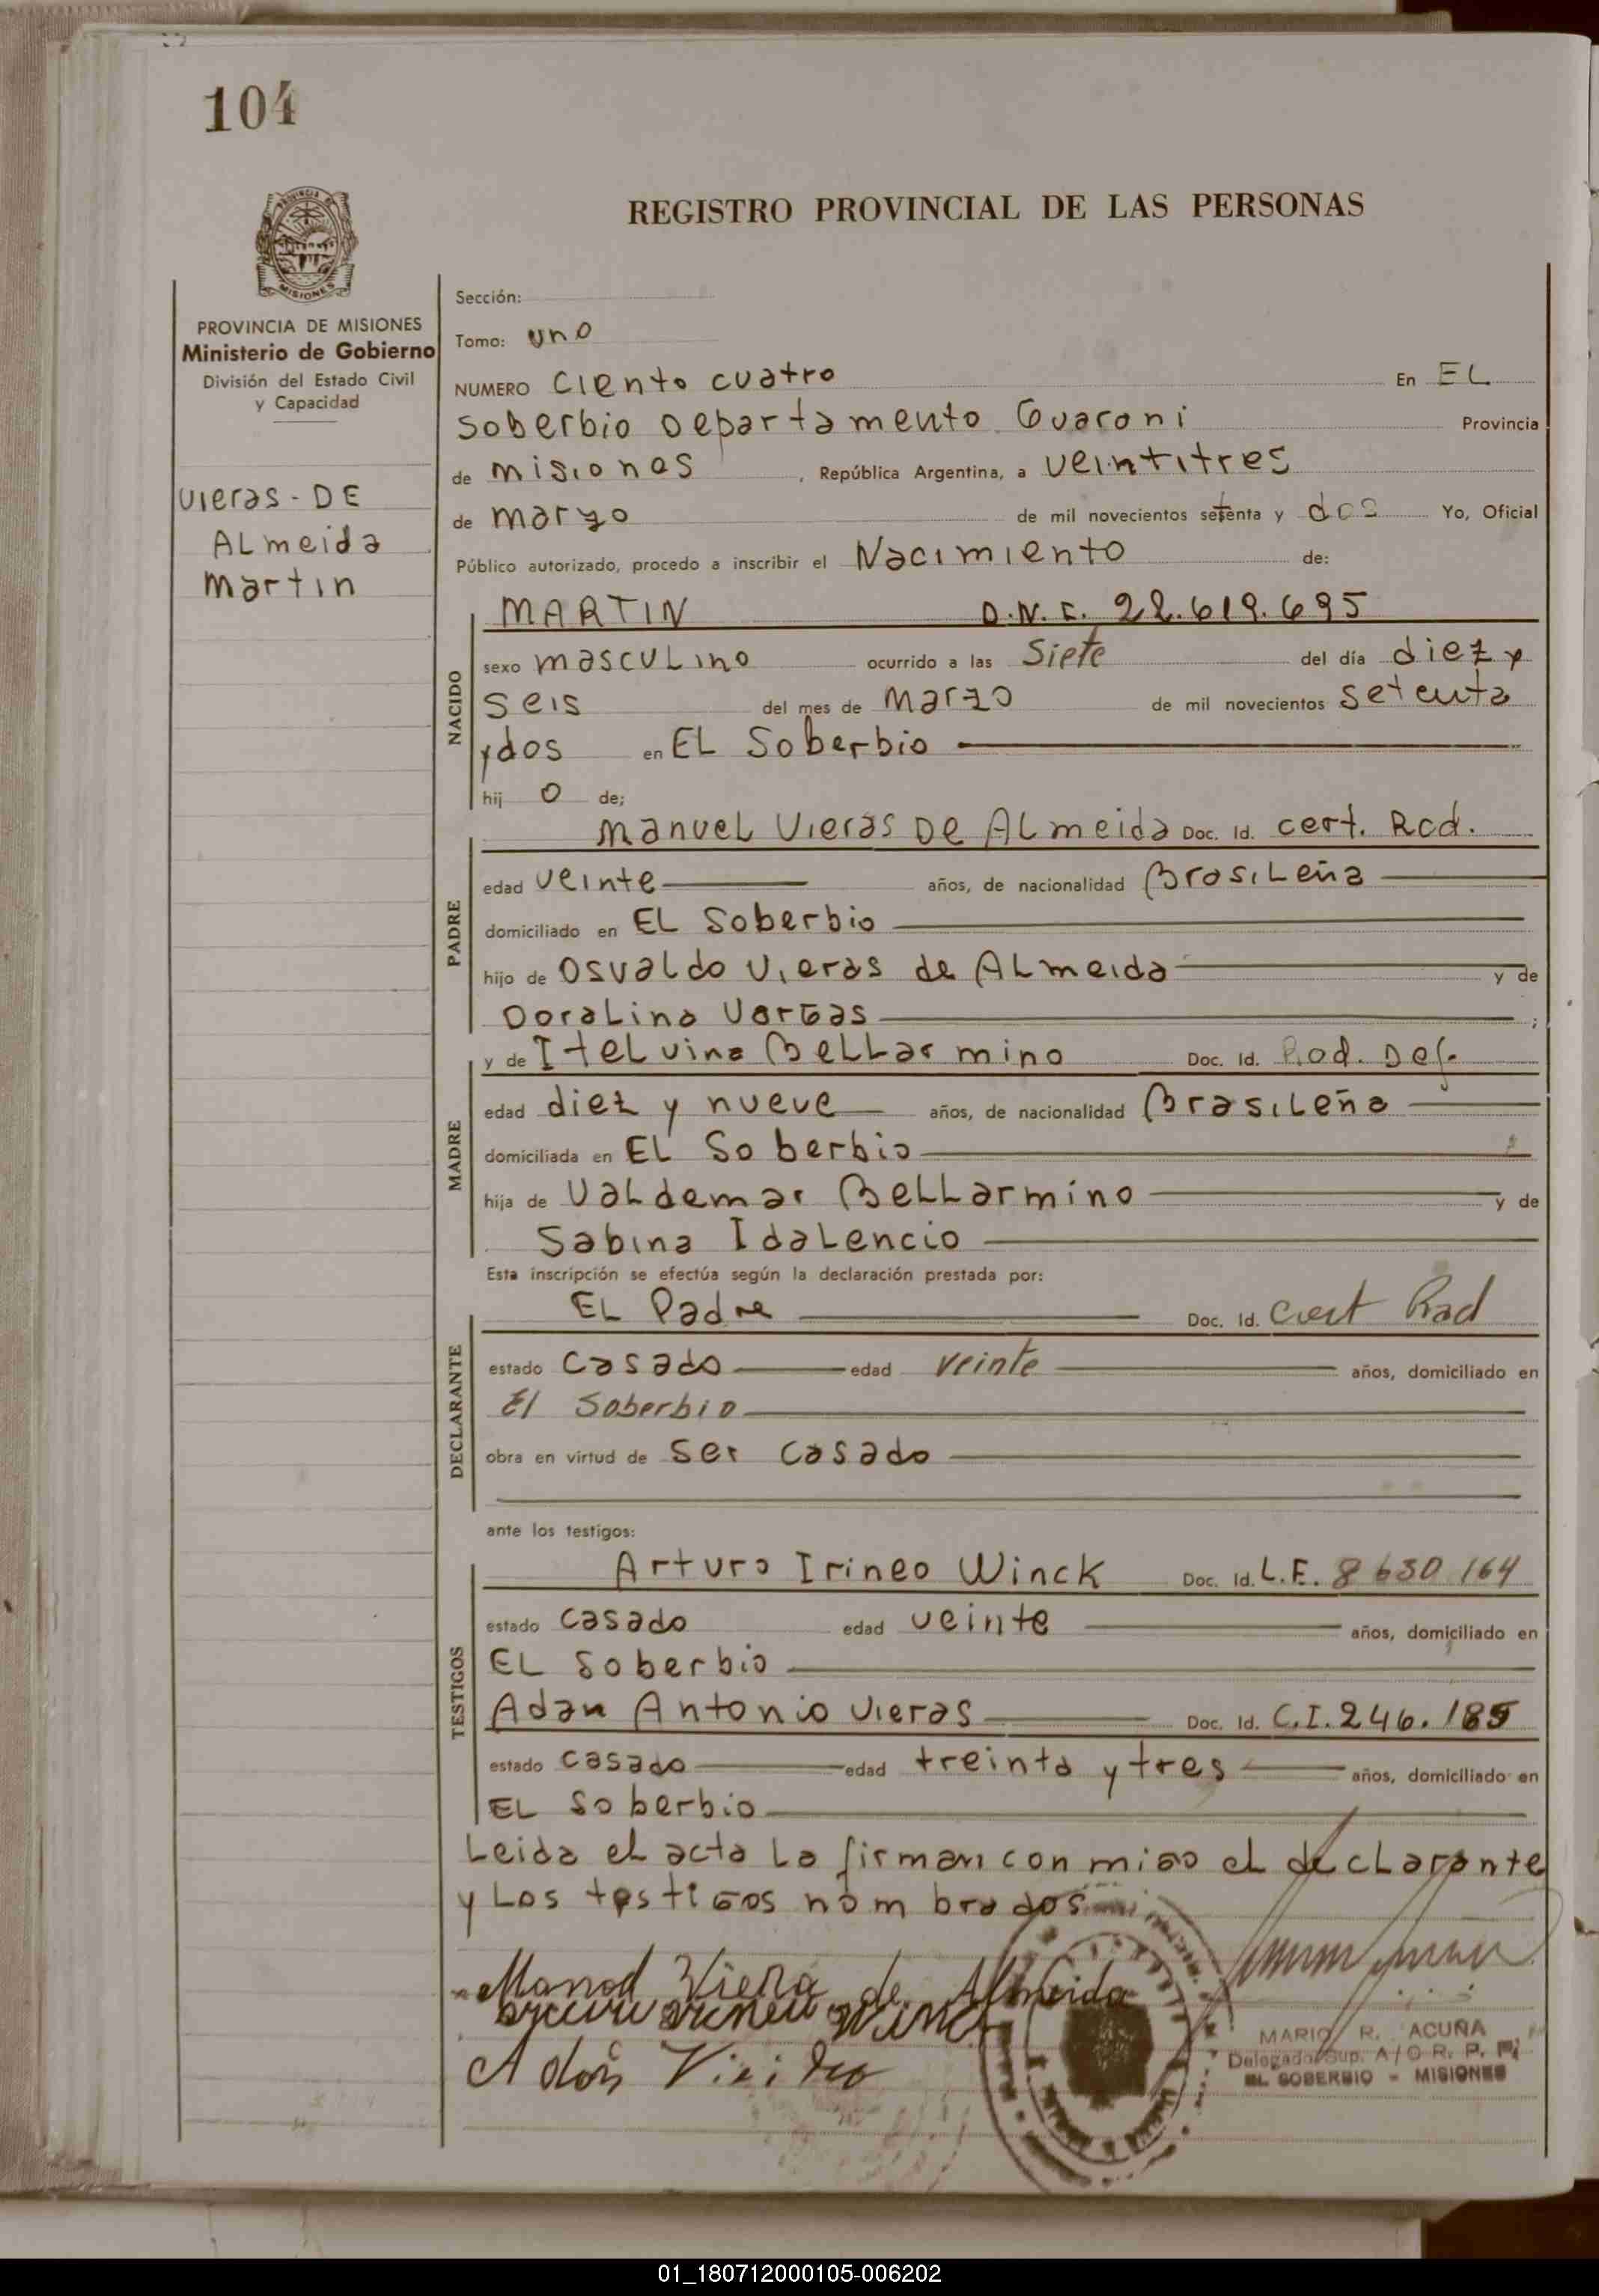 104
REGISTRO PROVINCIAL DE LAS PERSONAS
MISIONES
PROVINCIA DE MISIONES
Ministerio de Gobierno
División del Estado Civil
y Capacidad
Vieras - DE
ALmeida
martin
Sección:
Tomo: uno
NUMERO ciento cuatro En EL
Soberbio Departamento Guarani Provincia
de misiones, República Argentina, a veintitres
de marzo de mil novecientos setenta y dos Yo, Oficial
Público autorizado, procedo a inscribir el Nacimiento de:
NACIDO
MARTIN D.N.I. 22.619.695
sexo masculino ocurrido a las Siete del día diez y
seis del mes de marzo de mil novecientos setenta
y dos en EL Soberbio
hij o de;
PADRE
manuel Vieras De ALmeida Doc. Id. cert. Rad.
edad veinte años, de nacionalidad Brasileña
domiciliado en EL Soberbio
hijo de Osvaldo Vieras de ALmeida y de
Doralina Vargas ;
MADRE
y de Itelvina Bellarmino Doc. Id. Rad. Def.
edad diez y nueve años, de nacionalidad Brasileña
domiciliada en EL Soberbio
hija de Valdemar Bellarmino y de
Sabina Idalencio
Esta inscripción se efectúa según la declaración prestada por:
DECLARANTE
EL Padre Doc. Id. Cert Rad
estado casado edad veinte años, domiciliado en
El Soberbio
obra en virtud de ser casado
ante los testigos:
TESTIGOS
Arturo Irineo Winck Doc. Id. L.E. 8630164
estado casado edad veinte años, domiciliado en
EL Soberbio
Adan Antonio Vieras Doc. Id. C.I. 246.185
estado casado edad treinta y tres años, domiciliado en
EL Soberbio
Leida el acta la firman conmigo el declarante
y los testigos nombrados
Manoel Viera de Almeida
MARIO R. ACUÑA
Delegado Sup. A/C R. P. P.
EL SOBERBIO - MISIONES
01_180712000105-006202